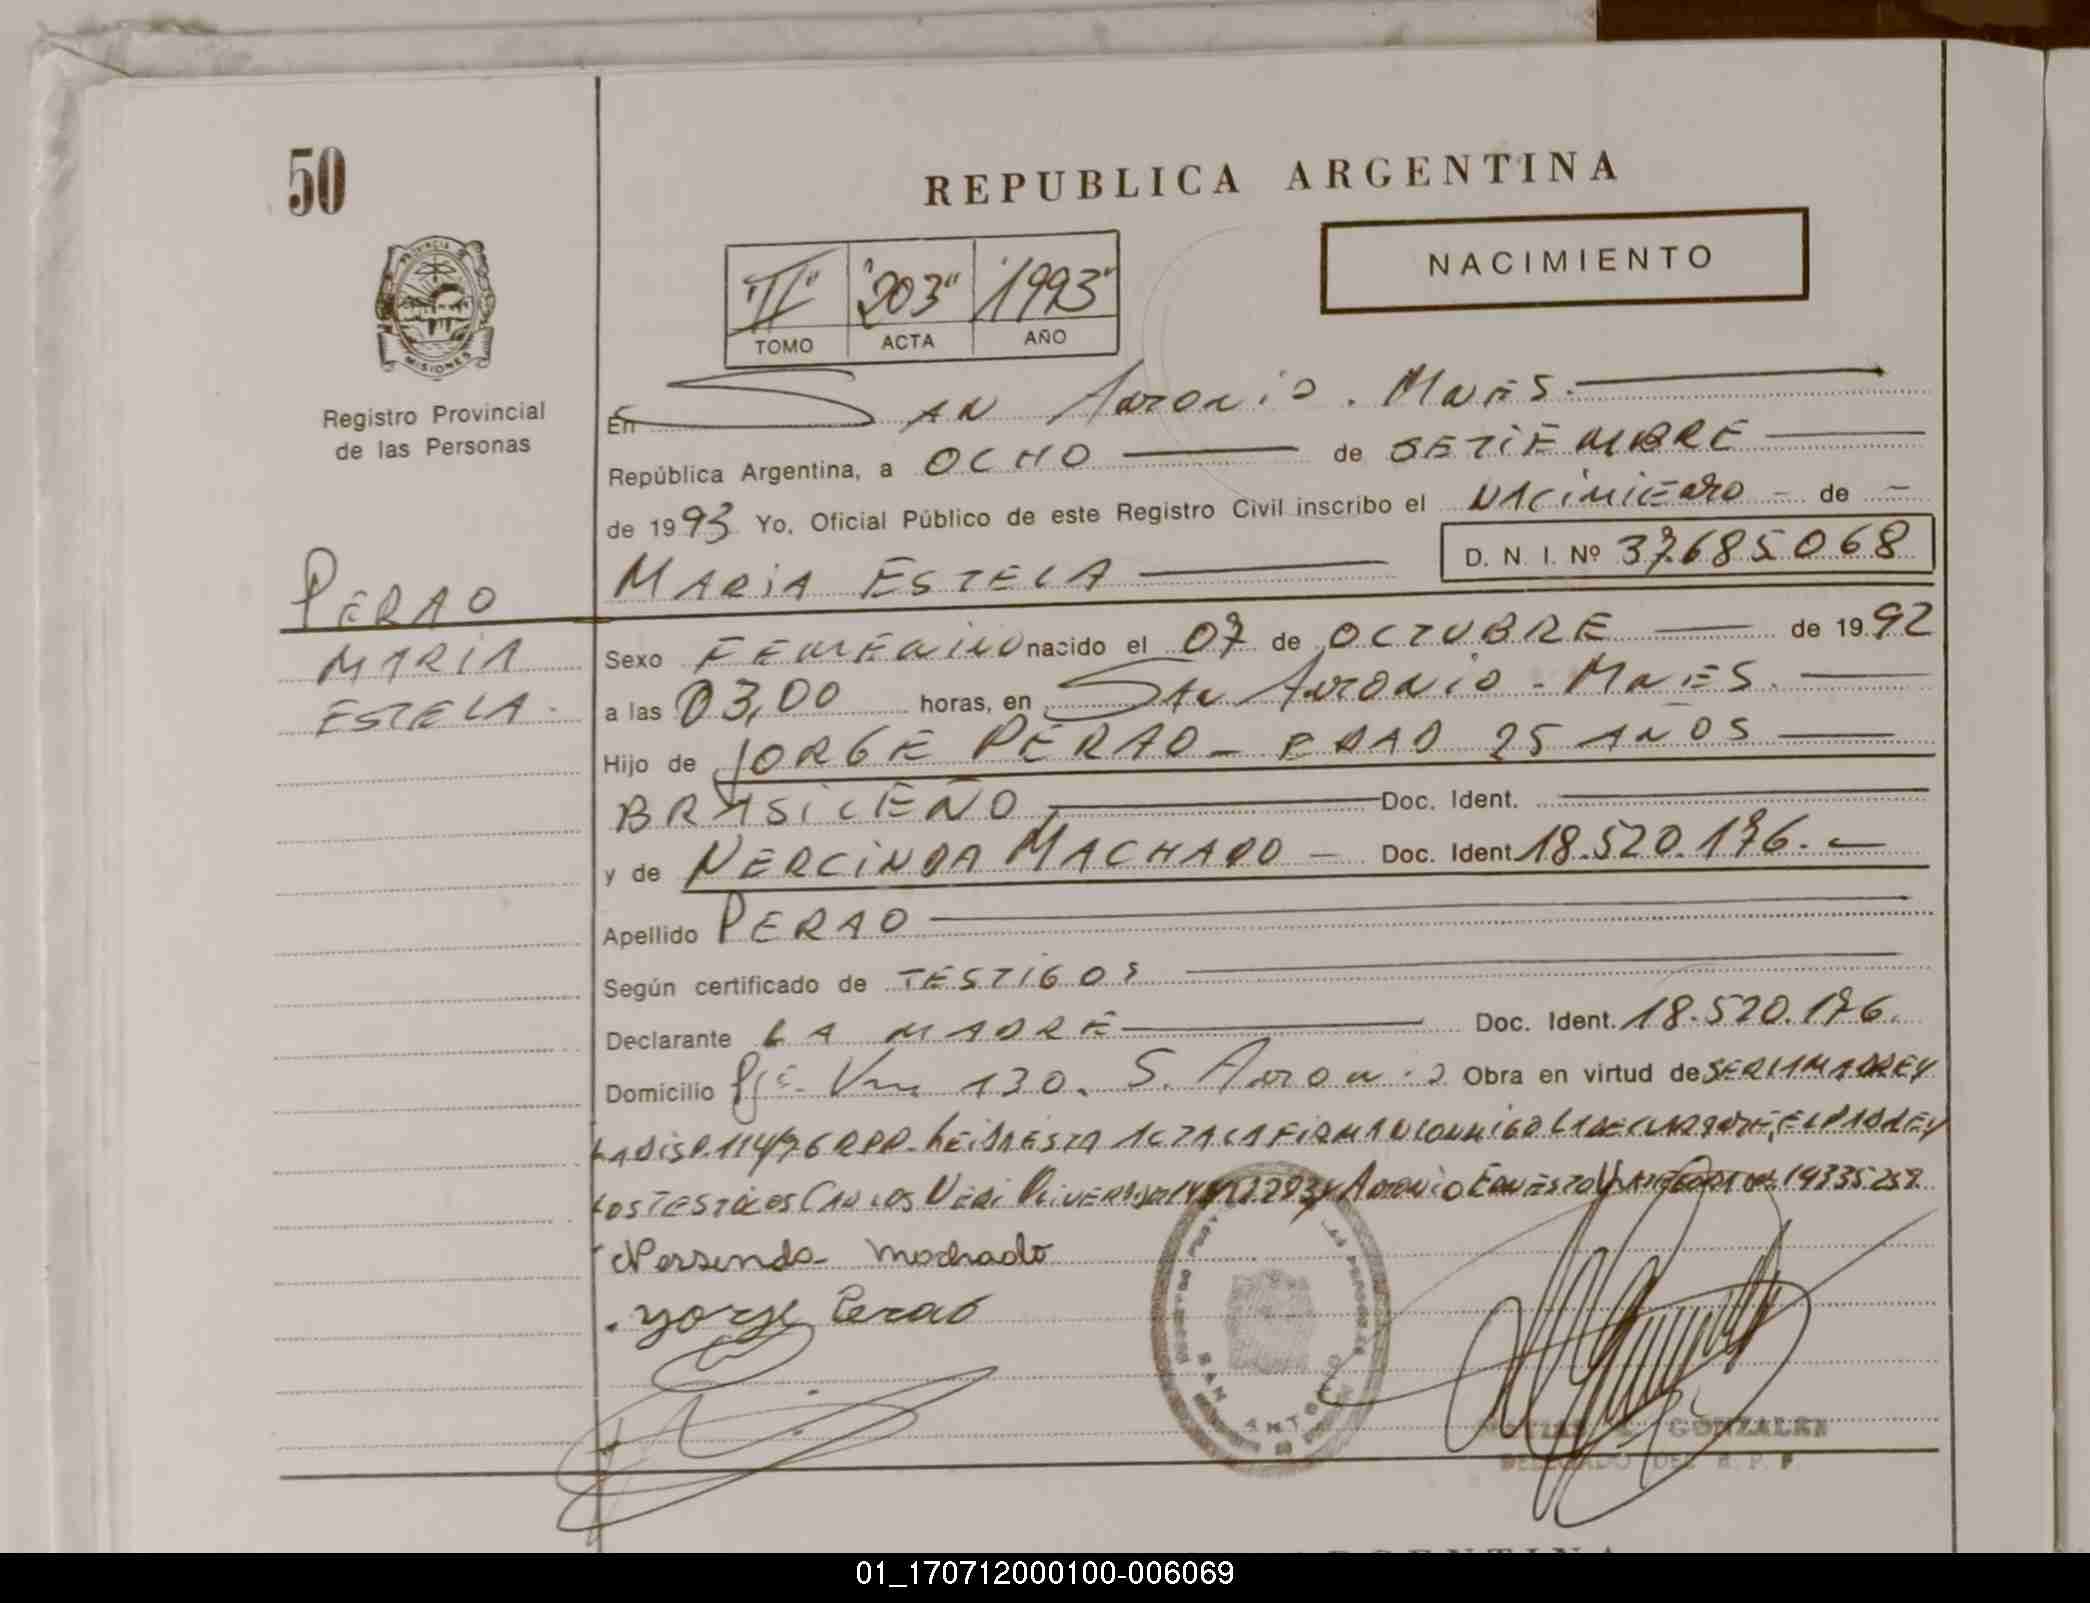 50
REPUBLICA ARGENTINA
NACIMIENTO
"II" "203" "1993"
TOMO ACTA AÑO
PROVINCIA DE MISIONES
Registro Provincial
de las Personas
En SAN Antonio. Mnes.
República Argentina, a OCHO de SETIEMBRE
de 1993 Yo, Oficial Público de este Registro Civil inscribo el NACIMIENTO - de -
MARIA ESTELA D. N. I. Nº 37685068
PERAO
MARIA
ESTELA.
Sexo FEMENINO nacido el 07 de OCTUBRE de 1992
a las 03,00 horas, en San Antonio - Mnes.
Hijo de JORGE PERAO - EDAD 25 AÑOS
BRASILEÑO Doc. Ident.
y de NERCINDA MACHADO - Doc. Ident 18.520.176.-
Apellido PERAO
Según certificado de TESTIGOS
Declarante LA MADRE Doc. Ident. 18.520.176.
Domicilio 130. S. Antonio Obra en virtud de SER LA MADRE Y
LA DISP. 114/76 RPP. LEIDA ESTA ACTA LA FIRMAN CONMIGO LA DECLARANTE, EL PADRE Y
LOS TESTIGOS CARLOS NERI OLIVERA Y Antonio Ernesto 14335259
Nersinda Machado
. yorge Perao
SAN ANTONIO
GONZALEZ
DELEGADO DEL R. P. P.
01_170712000100-006069